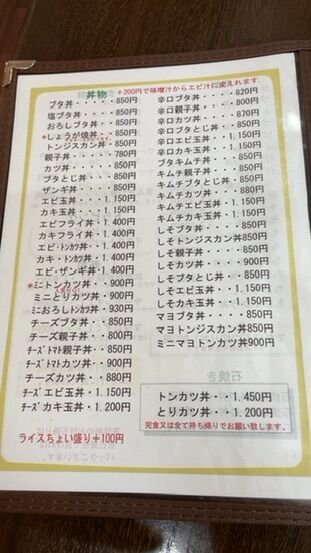 丼物 +200円で味噌汁からエビ汁に変えれます
ブタ丼・・・・・850円
塩ブタ丼・・・・850円
おろしブタ丼・・850円
*しょうが焼丼・・850円
トンジスカン丼・850円
親子丼・・・・・780円
カツ丼・・・・・850円
ブタとじ丼・・・850円
ザンギ丼・・・・850円
エビ玉丼・・・1,150円
カキ玉丼・・・1,150円
エビフライ丼・1,400円
カキフライ丼・1,400円
エビ・トンカツ丼・1,400円
カキ・トンカツ丼・1,400円
エビ・ザンギ丼・1,400円
*ミニトンカツ丼・900円
ミニとりカツ丼・900円
ミニおろしトンカツ丼・930円
チーズブタ丼・・850円
チーズ親子丼・・800円
チーズトマト親子丼・850円
チーズトマトカツ丼・900円
チーズカツ丼・・880円
チーズエビ玉丼・1,150円
チーズカキ玉丼・1,200円
ライスちょい盛り+100円
辛口ブタ丼・・・820円
辛口親子丼・・・800円
辛口カツ丼・・・870円
辛口ブタとじ丼・・850円
辛口エビ玉丼・1,150円
辛口カキ玉丼・1,150円
ブタキムチ丼・・850円
キムチ親子丼・・850円
キムチブタとじ丼・880円
キムチカツ丼・・900円
キムチエビ玉丼・1,150円
キムチカキ玉丼・1,150円
しそブタ丼・・・850円
しそトンジスカン丼850円
しそ親子丼・・・850円
しそカツ丼・・・900円
しそブタとじ丼・・850円
しそエビ玉丼・・1,150円
しそカキ玉丼・・1,150円
マヨブタ丼・・・850円
マヨトンジスカン丼850円
ミニマヨトンカツ丼900円
トンカツ丼・・1,450円
とりカツ丼・・1,200円
完食又は全て持ち帰りでお願い致します。